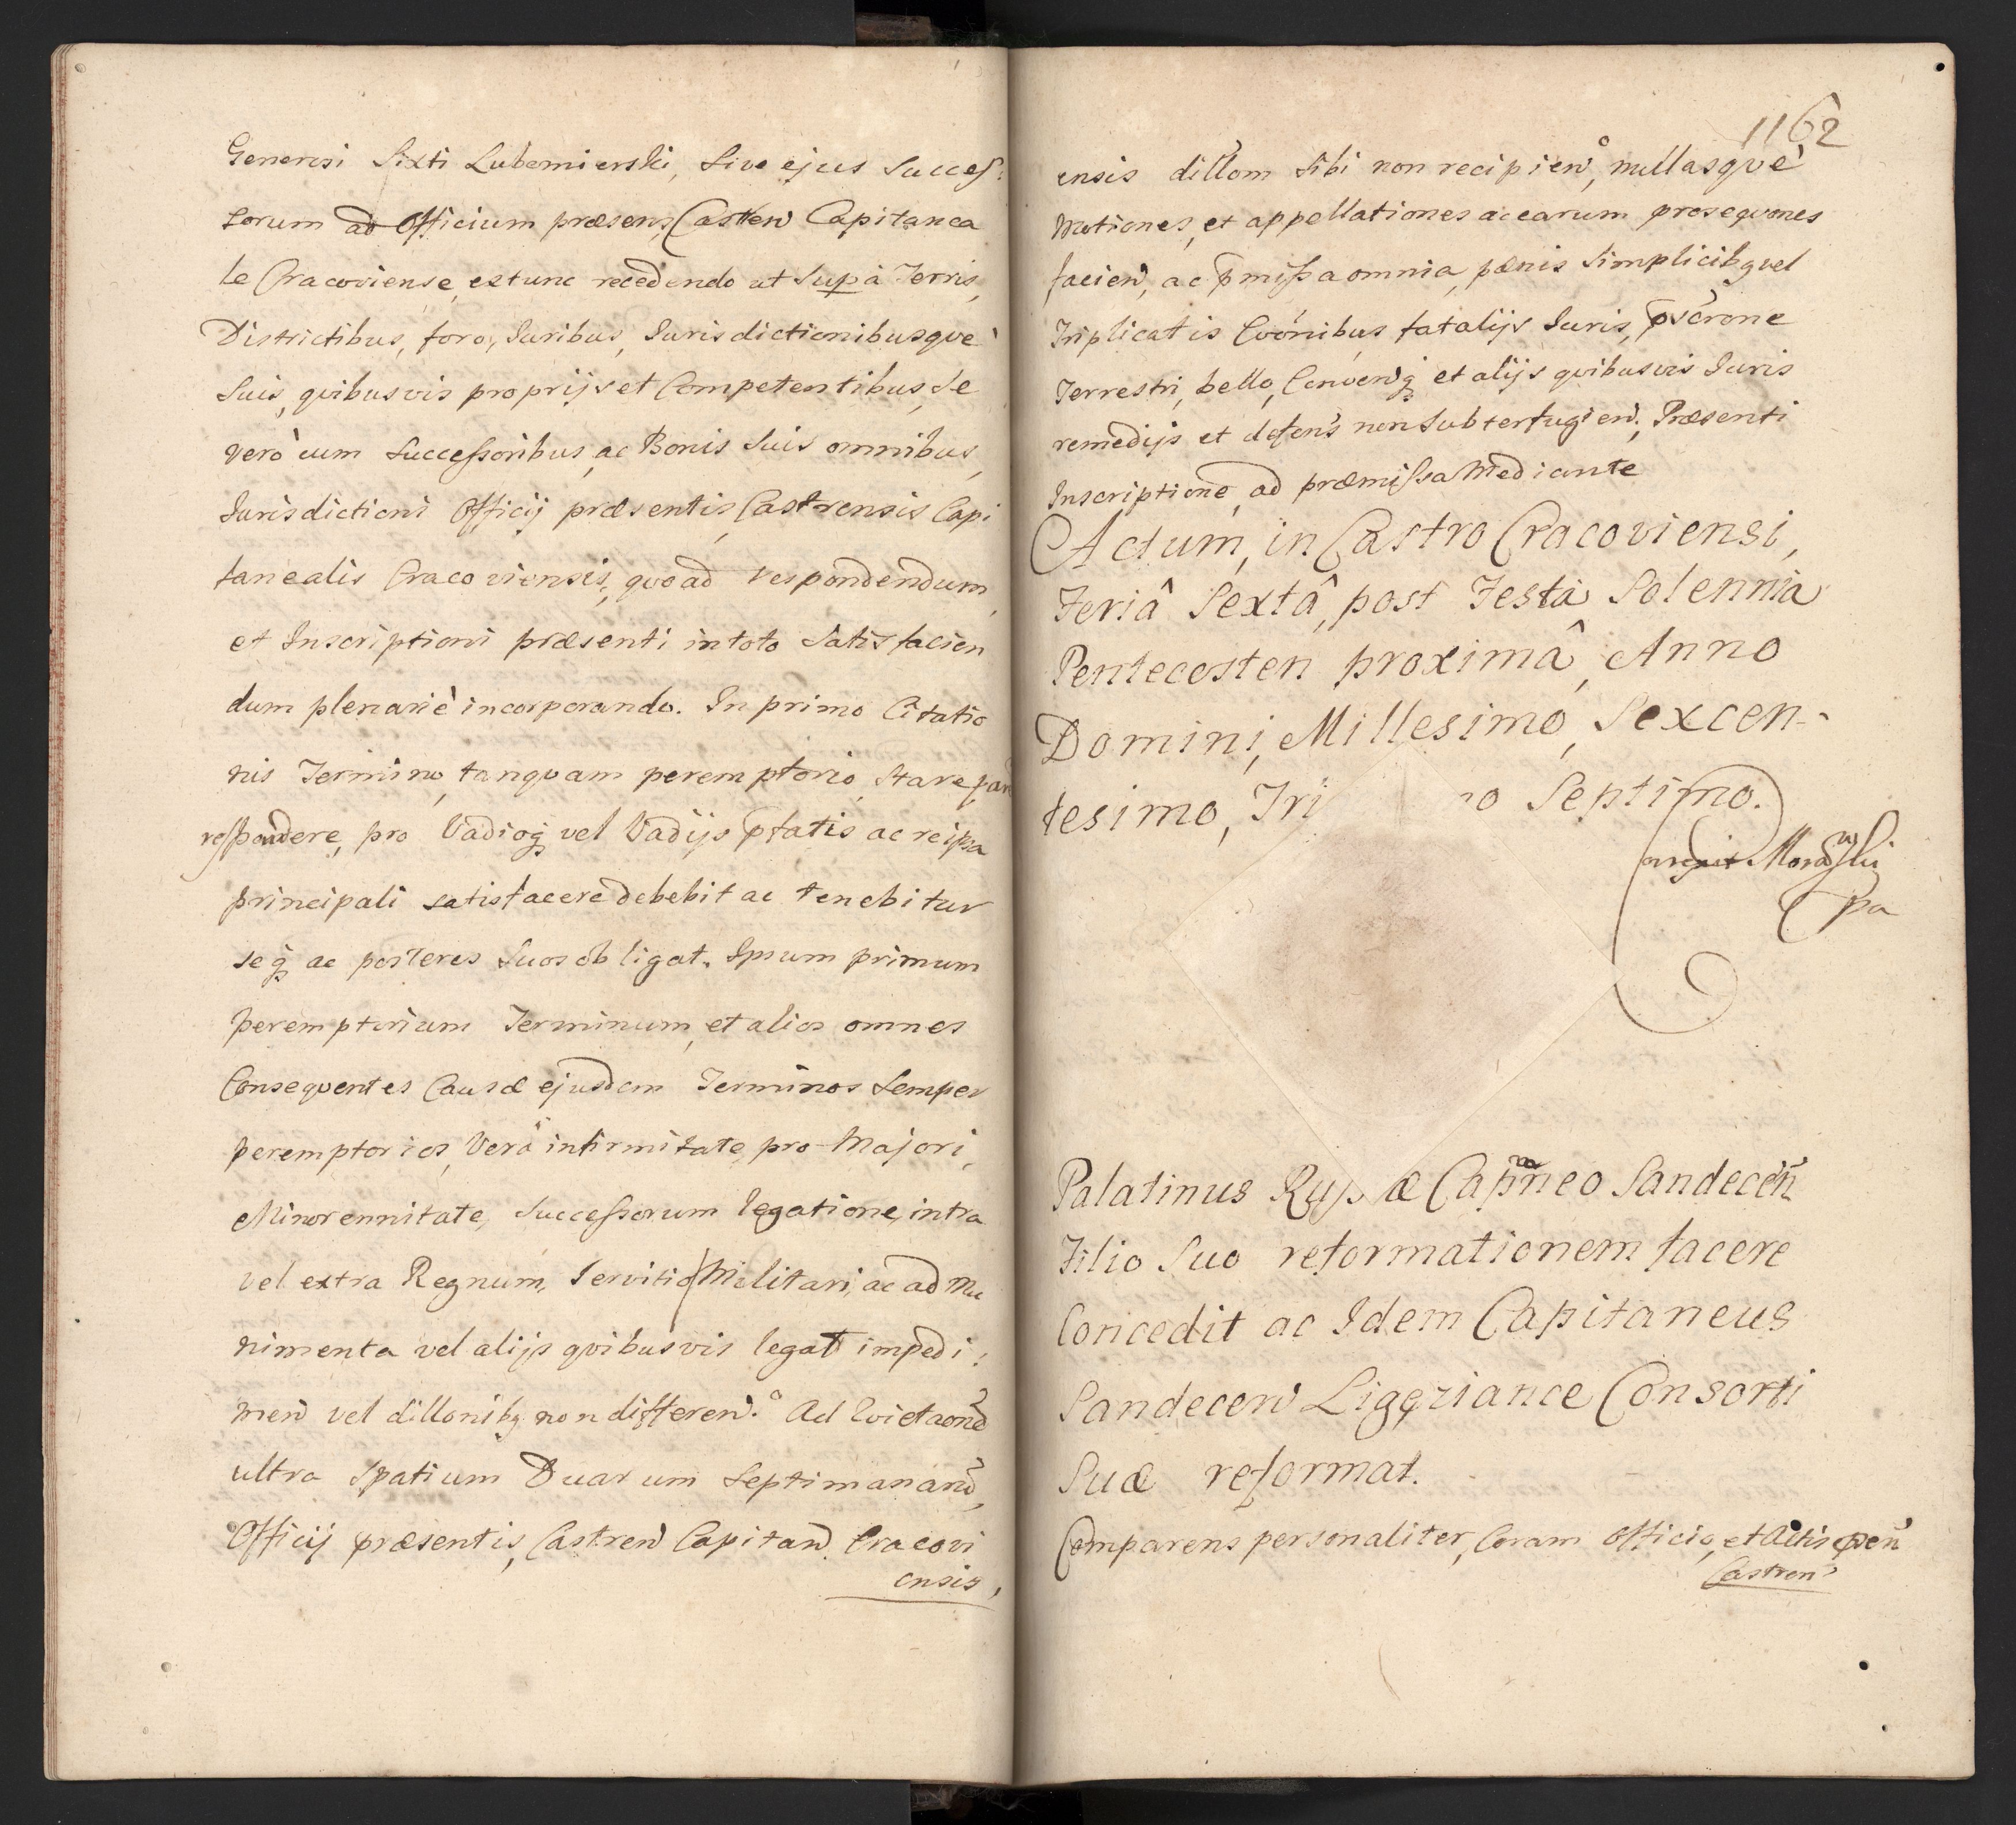 Generosi Sixti Lubomierski, Sive ejus Succes:
sorum ad Officium præsens, Castren Capitanea
le Cracoviense, ex tunc recedendo ut Supà Terris,
Districtibus, foro, Iuribus, Iurisdictionibusqvè
Suis, qvibusvis proprijs et Competentibus, Se
verò cum Successoribus, ac Bonis Suis omnibus,
Iurisdictioni Officij præsentis, Castrensis Capi
tanealis Cracoviensis, qvoad respondendum,
et Inscriptioni præsenti in toto Satisfacien
dum plenariè incorporando. In primo Citatio
nis Termino, tanqvam peremptorio, Stare par
respondere, pro Vadioq vel Vadijs pfatis ac reipsa
principali satisfacere debebit ac tenebitur
seq ac posteros Suos obligat. Ipsum primum
peremptorium Terminum, et alios omnes
Conseqventes Causæ ejusdem Terminos Semper
peremptorios, Verâ infirmitate, pro Majori,
Minorennitate, Successorum legatione, intra
vel extra Regnum, Servitio Militari, ac ad Mu
nimenta vel alijs qvibusvis legat impedi:
men vel dillonibq non differen.° Ad Evictaone
ultra Spatium Duarum Septimanaru,
Officij præsentis, Castren Capitan Cracovi
ensis,
1162
ensis dillom Sibi non recipien°, nullasqvè
motiones, et appellationes ac earum proseqvones
facien, ac pmissa omnia, pænis Simplicibq vel
Triplicatis Evonibus fatalijs Iuris, pscrone
Terrestri, bello, Convenq et alijs qvibusvis Iuris
remedijs et defens non Subterfugien, Præsenti
Inscriptione, ad præmissa Mediante
Actum, in Castro Cracoviensi,
Feriâ Sextâ, post Festa Solennia
Pentecosten proximâ, Anno
Domini, Millesimo, Sexcen-
tesimo, Tri no Septimo.
pa
Palatinus Rus æ Capneo Sandecen
Filio Suo reformationem facere
Concedit ac Idem Capitaneus
Sandecen Ligęziance Consorti
Suæ reformat.
Comparens personaliter, Coram Officio, et Actis psen
Castren